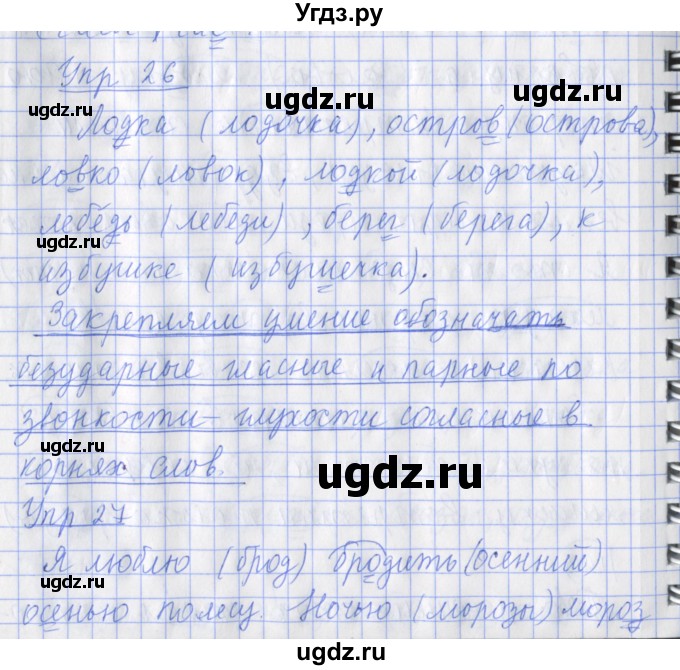 Угдз.ру
Упр 26
ugdz.ru ugdz.ru ugdz.ru
Лодка (лодочка), остров (острова),
ловко (ловок), лодкой (лодочка),
ugdz.ru
лебедь (лебеди), берег (берега), к
ugdz.ru ugdz.ru
избушке (избушечка).
Закрепляем умение обозначать
ugdz.ru
безударные гласные и парные по
звонкости – глухости согласные в
ugdz.ru ugdz.ru
корнях слов.
ugdz.ru
Упр 27
Я люблю (брод) бродить (осенний)
ugdz.ru ugdz.ru
осенью по лесу. Ночью (морозы) мороз
Угдз.ру